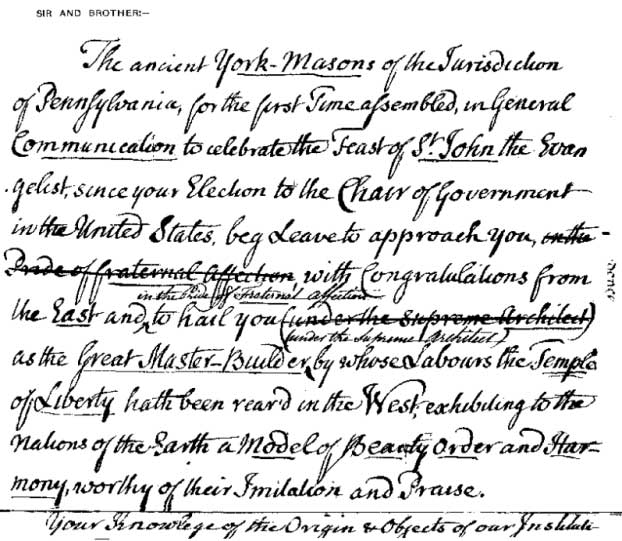 SIR AND BROTHER:—
The ancient York-Masons of the Jurisdiction
of Pennsylvania, for the first Time assembled, in General
Communication to celebrate the Feast of St. John the Evan
gelist, since your Election to the Chair of Government
in the United States, beg Leave to approach you, in the
Pride of fraternal affection with Congratulations from
in the Pride of Fraternal affection
the East and, to hail you (under the Supreme Architect)
(under the Supreme Architect)
as the Great Master-Builder, by whose Labours the Temple
of Liberty hath been rear'd in the West, exhibiting to the
Nations of the Earth a Model of Beauty Order and Har-
mony, worthy of their Imitation and Praise.
Your Knowlege of the Origin & Objects of our Instituti